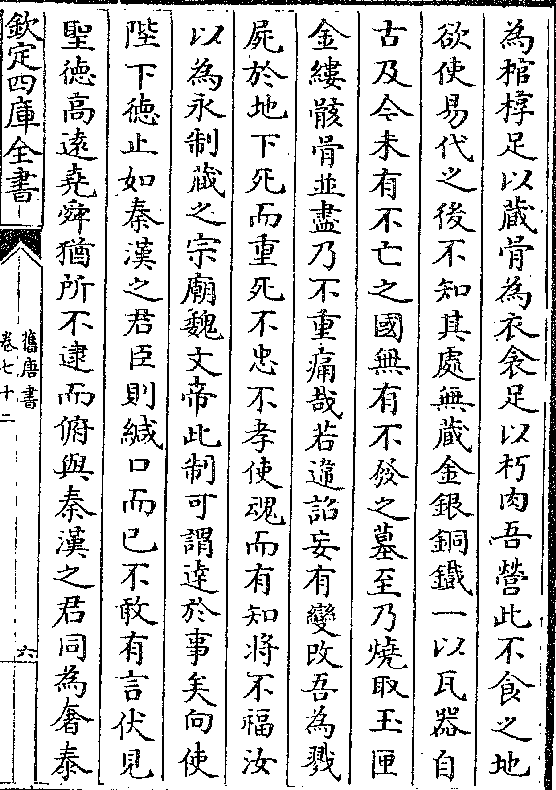 為棺椁足以藏骨為衣衾足以朽肉吾營此不食之地
欲使易代之後不知其處無藏金銀銅鐵一以瓦器自
古及今未有不亡之國無有不發之墓至乃燒取玉匣
金縷骸骨並盡乃不重痛哉若違詔妄有變改吾為戮
屍於地下死而重死不忠不孝使魂而有知將不福汝
以為永制藏之宗廟魏文帝此制可謂達於事矣向使
陛下德止如秦漢之君臣則緘口而已不敢有言伏見
聖德高遠堯舜猶所不逮而俯與秦漢之君同為奢泰
欽定四庫全書
舊唐書
卷七十二
六